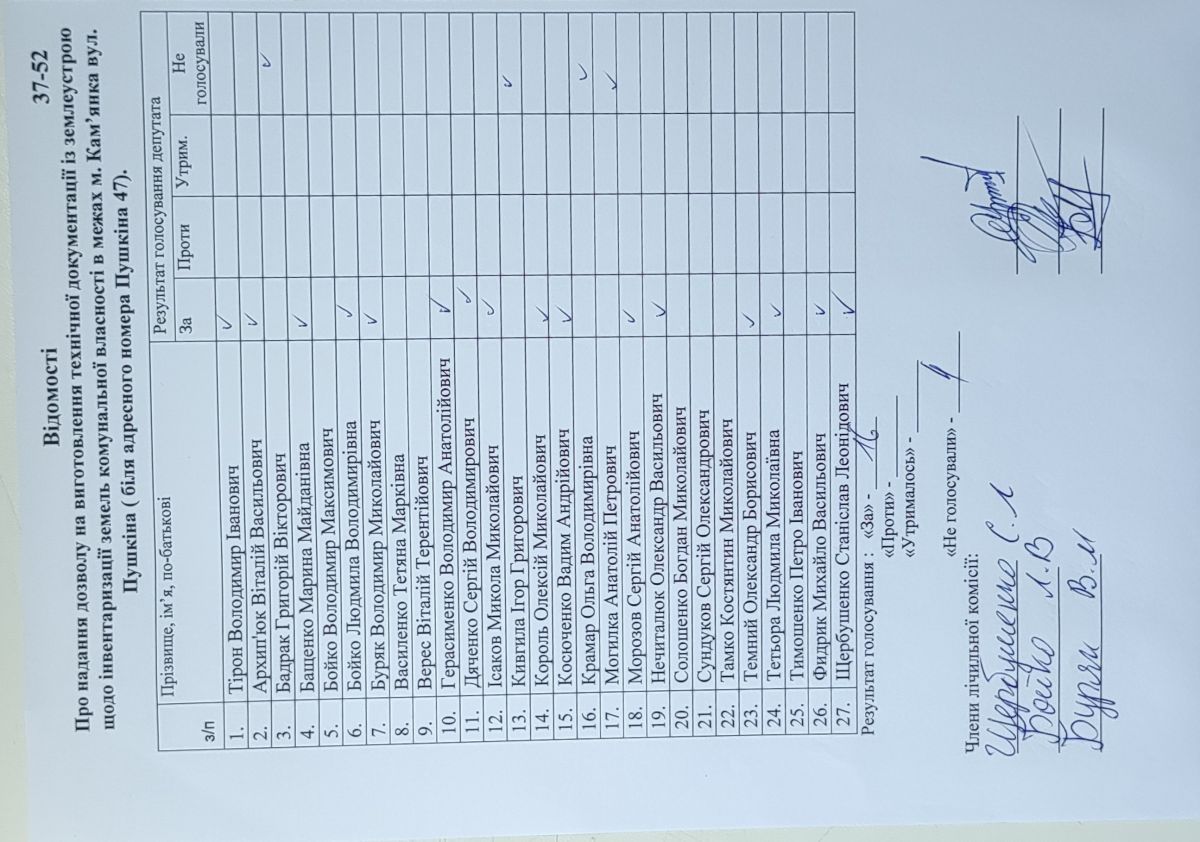 37-52
Відомості
Про надання дозволу на виготовлення технічної документації із землеустрою
щодо інвентаризації земель комунальної власності в межах м. Кам’янка вул.
Пушкіна ( біля адресного номера Пушкіна 47).
з/п Прізвище, ім’я, по-батькові Результат голосування депутата
За Проти Утрим. Не голосували
1. Тірон Володимир Іванович ✓
2. Архип'юк Віталій Васильович ✓
3. Бадрак Григорій Вікторович ✓
4. Бащенко Марина Майданівна ✓
5. Бойко Володимир Максимович
6. Бойко Людмила Володимирівна ✓
7. Буряк Володимир Миколайович ✓
8. Василенко Тетяна Марківна
9. Верес Віталій Терентійович
10. Герасименко Володимир Анатолійович ✓
11. Дяченко Сергій Володимирович ✓
12. Ісаков Микола Миколайович ✓
13. Кивгила Ігор Григорович ✓
14. Король Олексій Миколайович ✓
15. Косюченко Вадим Андрійович ✓
16. Крамар Ольга Володимирівна ✓
17. Могилка Анатолій Петрович ✓
18. Морозов Сергій Анатолійович ✓
19. Нечиталюк Олександр Васильович ✓
20. Солошенко Богдан Миколайович
21. Сундуков Сергій Олександрович
22. Тамко Костянтин Миколайович
23. Темний Олександр Борисович ✓
24. Тетьора Людмила Миколаївна ✓
25. Тимошенко Петро Іванович
26. Фидрик Михайло Васильович ✓
27. Щербушенко Станіслав Леонідович ✓
Результат голосування : «За» - 16
«Проти» -
«Утрималось» -
«Не голосували» - 4
Члени лічильної комісії:
Щербушенко С.Л
Бойко Л.В
Буряк В.М